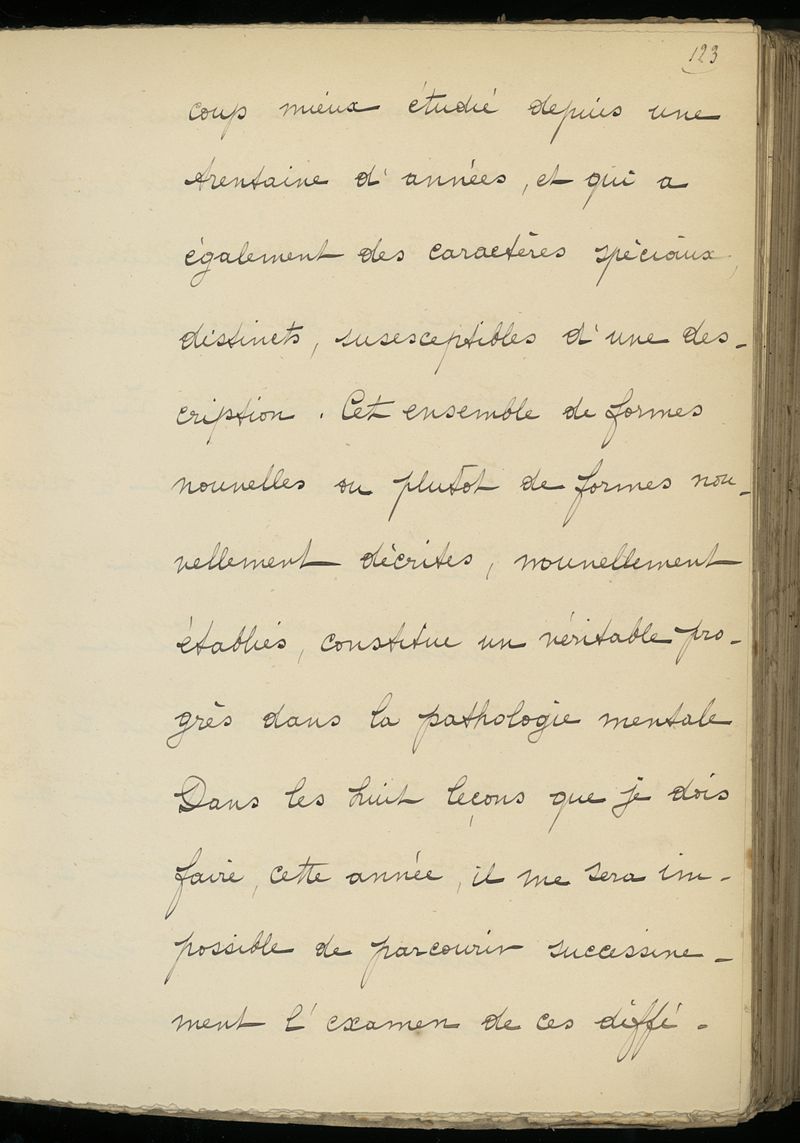 123
coup mieux étudié depuis une
trentaine d'années, et qui a
également des caractères spéciaux,
distincts, susesceptibles d'une des-
cription. Cet ensemble de formes
nouvelles ou plutôt de formes nou-
vellement décrites, nouvellement
établiés, constitue un véritable pro-
grès dans la pathologie mentale
Dans les huit leçons que je dois
faire, cette année, il me sera im-
possible de parcourir successive-
ment l'examen de ces diffé-